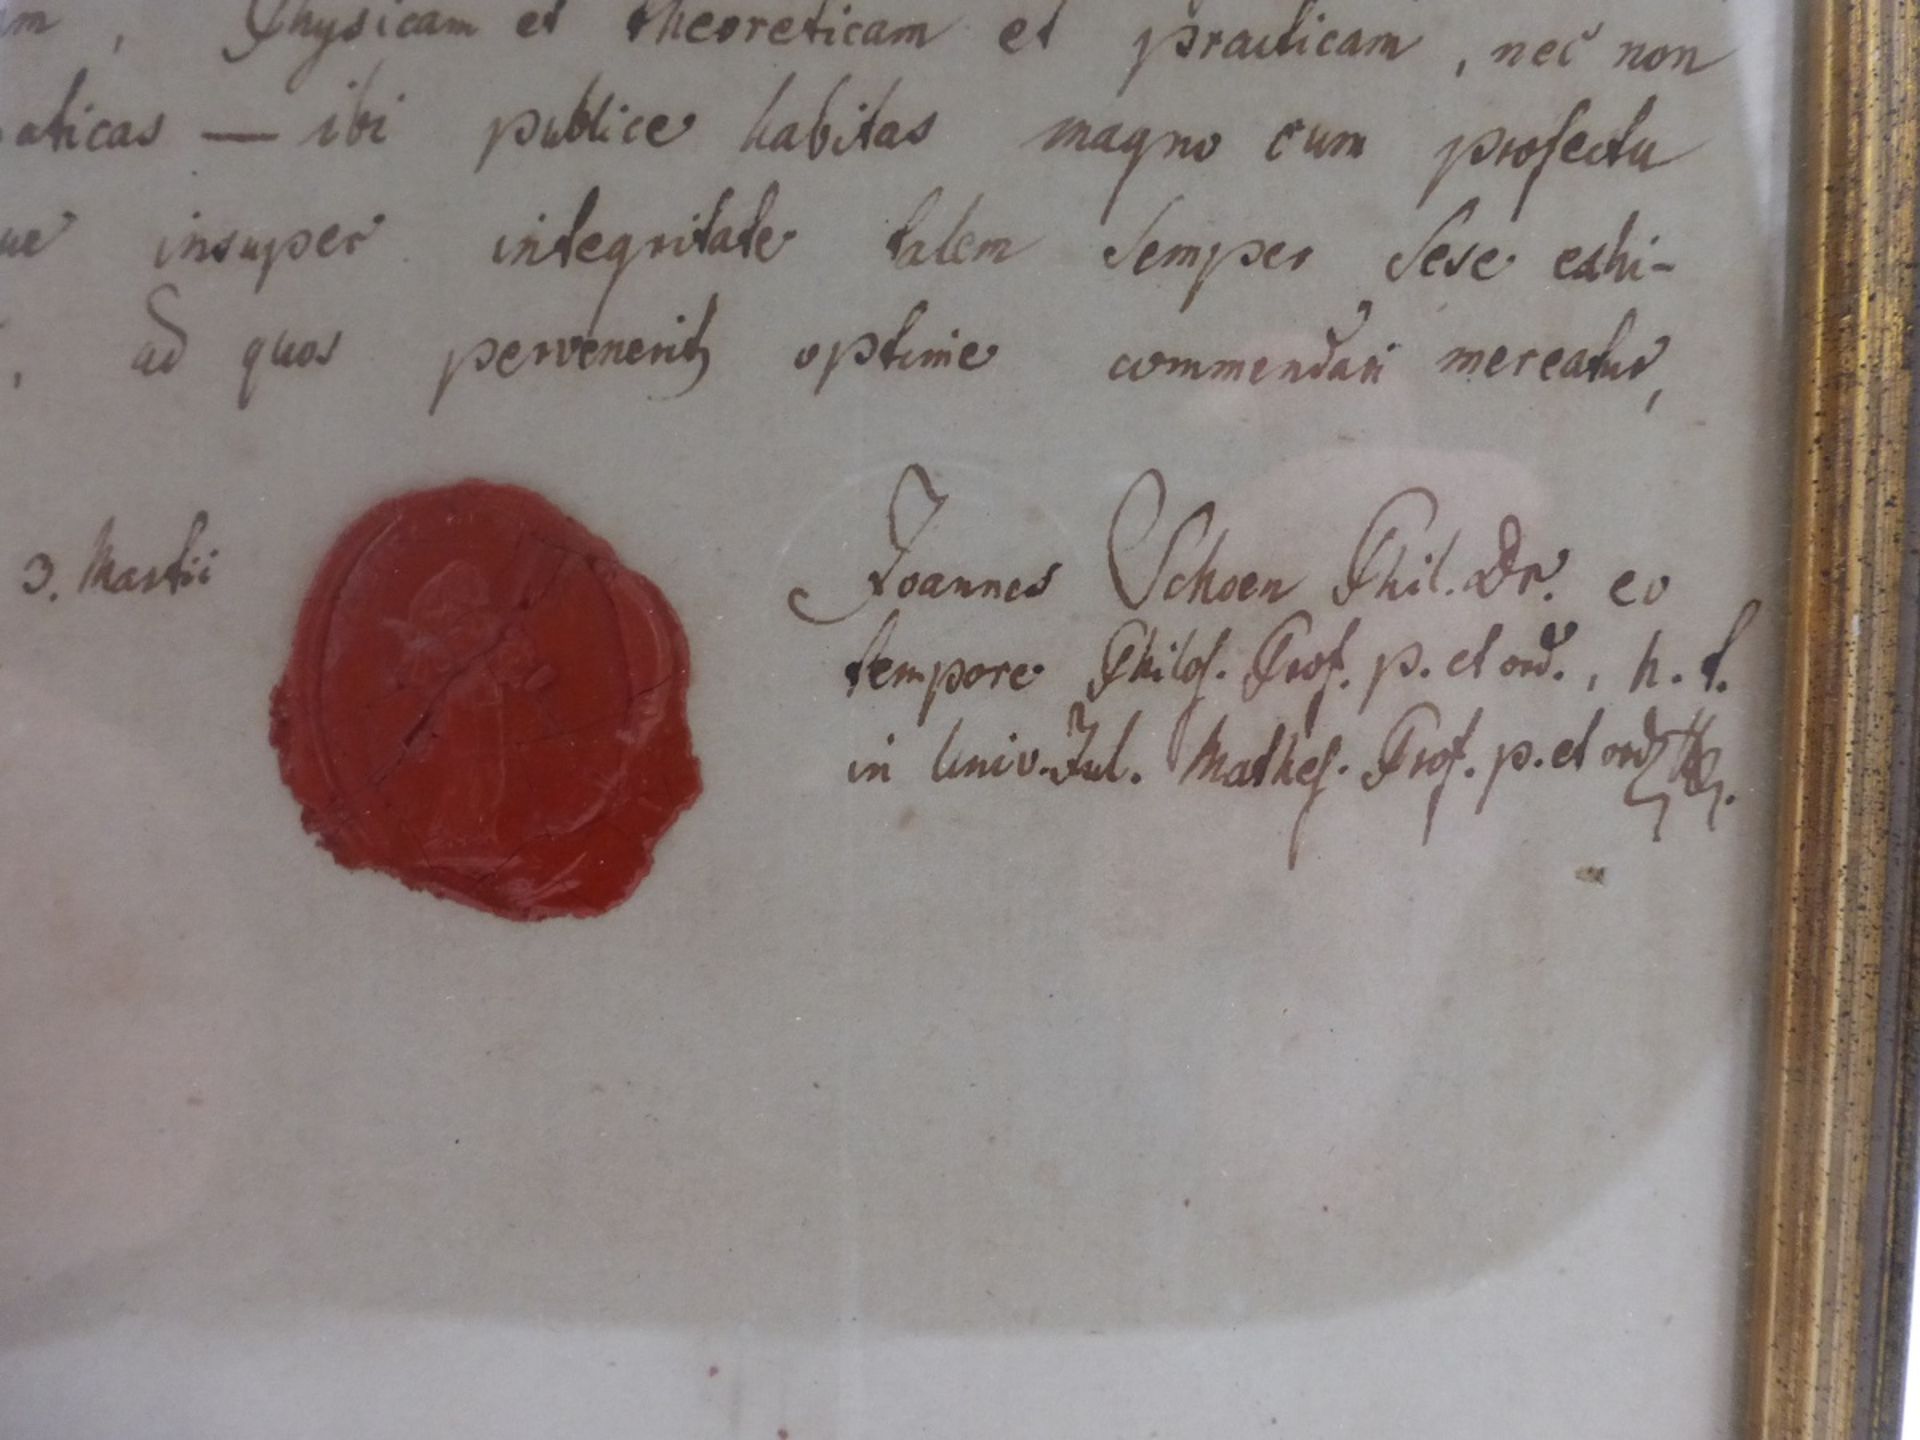 m, Physicam et theoreticam et practicam, nec non
aticas — ibi publice habitas magno cum profectu
ue insuper integritate talem semper sese exhi-
, ad quos pervenerit, optime commendari mereatur,
3. Martii
Joannes Schoen Phil. Dr. eo
tempore Philos. Prof. p. et ord., h. t.
in Univ. Jul. Mathes. Prof. p. et ord.